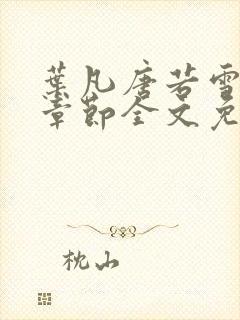 葉凡唐若雪
章節全文免
枕山